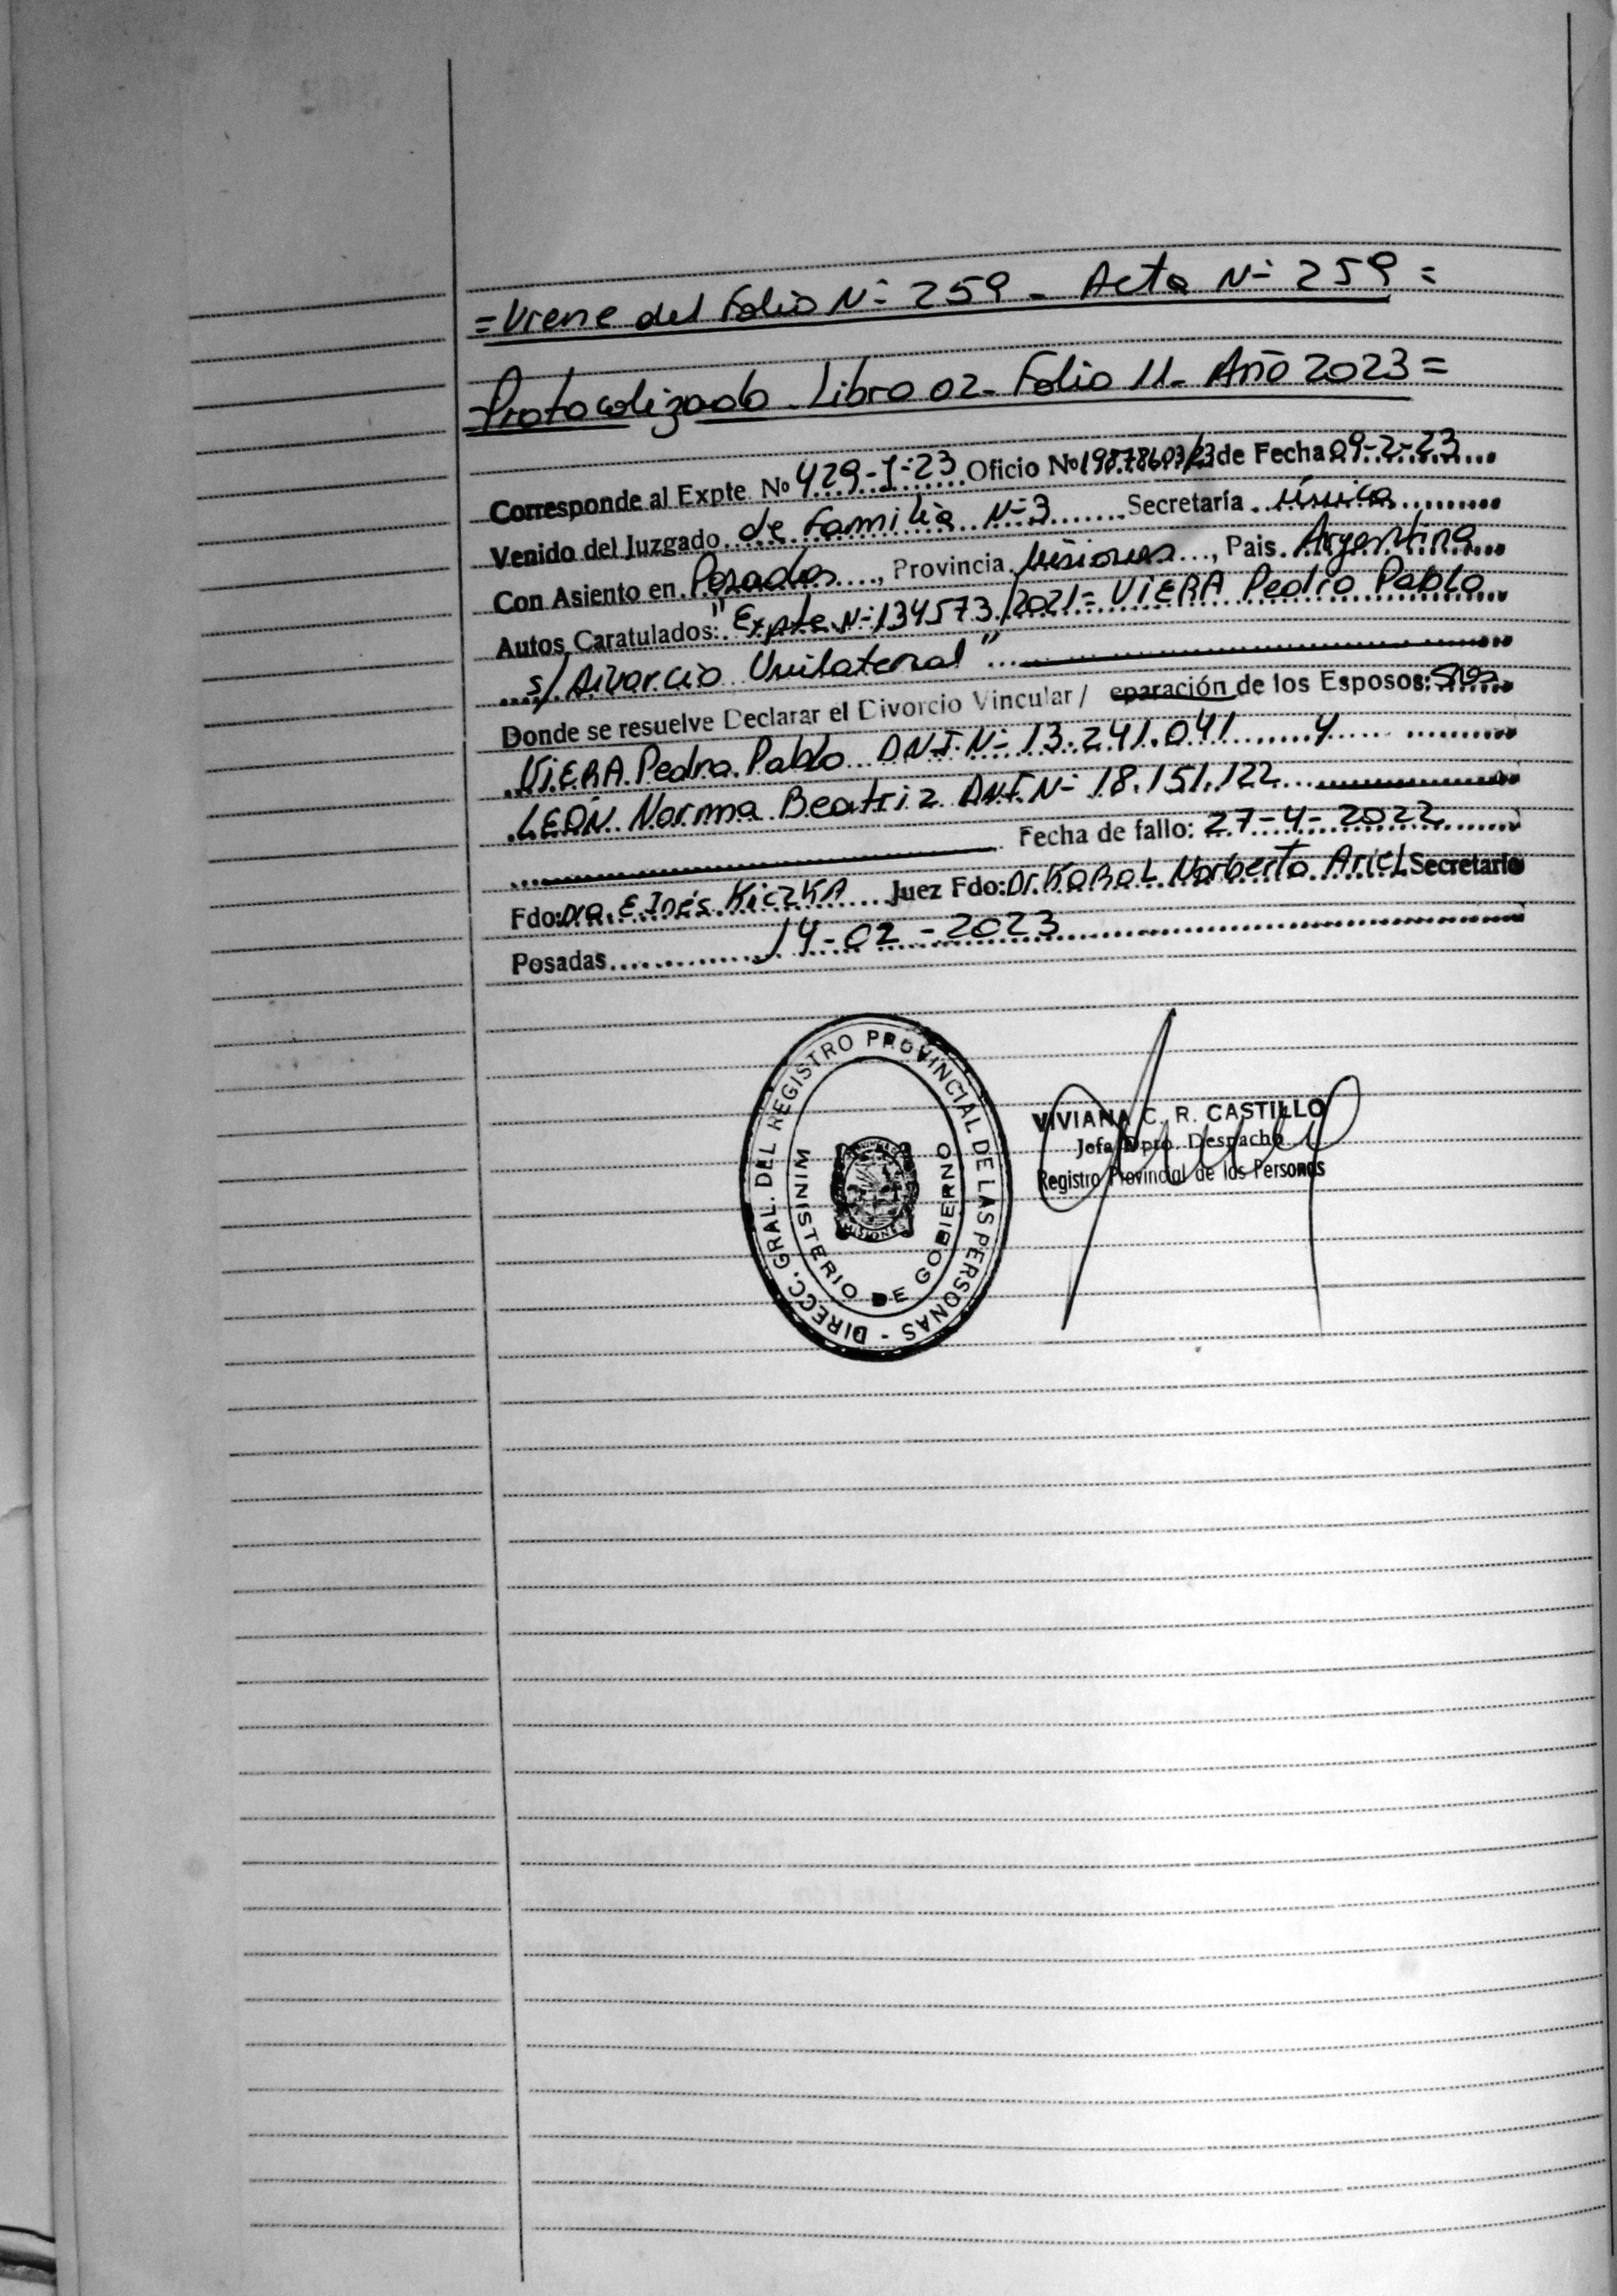 =Viene del Folio N- 259 - Acta N- 259=
Protocolizado - Libro 02 - Folio 11 - Año 2023=
Corresponde al Expte. No 429-I-23 Oficio No 19878603/23 de Fecha 09-2-23
Venido del Juzgado de Familia N-3 Secretaría única
Con Asiento en Posadas, Provincia Misiones, Pais Argentina
Autos Caratulados: "Expte N-134573/2021= VIERA Pedro Pablo
s/ Divorcio Unilateral"
Donde se resuelve Declarar el Divorcio Vincular / eparación de los Esposos: Sres
VIERA Pedro Pablo DNI N- 13.241.041 y
LEÓN Norma Beatriz DNI N- 18.151.122
Fecha de fallo: 27-4-2022
Fdo: Dra. E Inés KiczKA Juez Fdo: Dr. KABAL Norberto Ariel Secretario
Posadas 14-02-2023
DIRECC. GRAL. DEL REGISTRO PROVINCIAL DE LAS PERSONAS -
MINISTERIO DE GOBIERNO
MISIONES
VIVIANA C. R. CASTILLO
Jefa Dpto. Despacho
Registro Provincial de las Personas